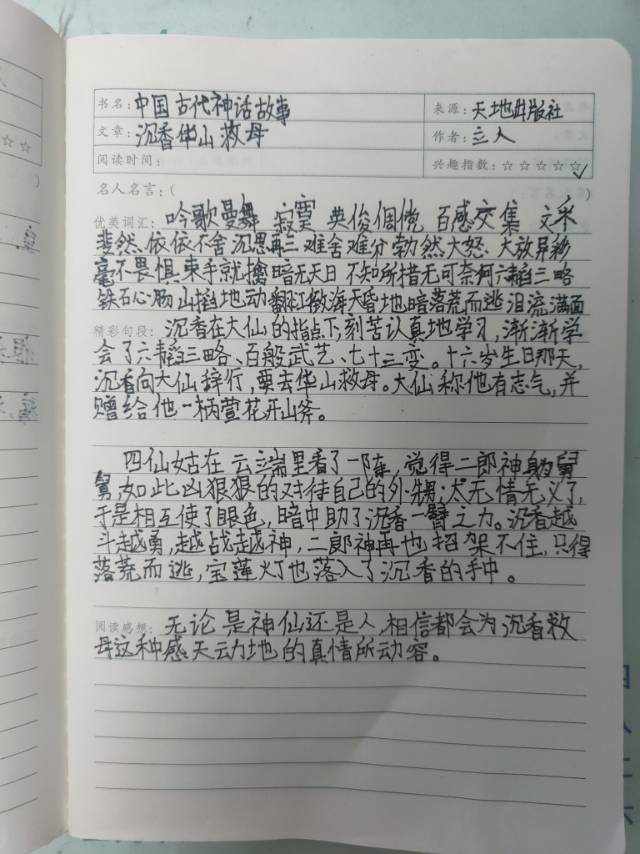 书名：中国古代神话故事 来源：天地出版社
文章：沉香华山救母 作者：立人
阅读时间： 兴趣指数：☆☆☆☆☆✓
名人名言：（
优美词汇：吟歌曼舞 寂寞 英俊倜傥 百感交集 文采
斐然 依依不舍 沉思再三 难舍难分 勃然大怒 大放异彩
毫不畏惧 束手就擒 暗无天日 不知所措 无可奈何 六韬三略
铁石心肠 山摇地动 翻江倒海 天昏地暗 落荒而逃 泪流满面
精彩句段：沉香在大仙的指点下，刻苦认真地学习，渐渐学
会了六韬三略、百般武艺、七十三变。十六岁生日那天，
沉香向大仙辞行，要去华山救母。大仙称他有志气，并
赠给他一柄萱花开山斧。
四仙姑在云端里看了一阵，觉得二郎神舅
舅如此凶狠狠的对待自己的外甥，太无情无义了，
于是相互使了眼色，暗中助了沉香一臂之力。沉香越
斗越勇，越战越神，二郎神再也招架不住，只得
落荒而逃，宝莲灯也落入了沉香的手中。
阅读感想：无论是神仙还是人，相信都会为沉香救
母这种感天动地的真情所动容。